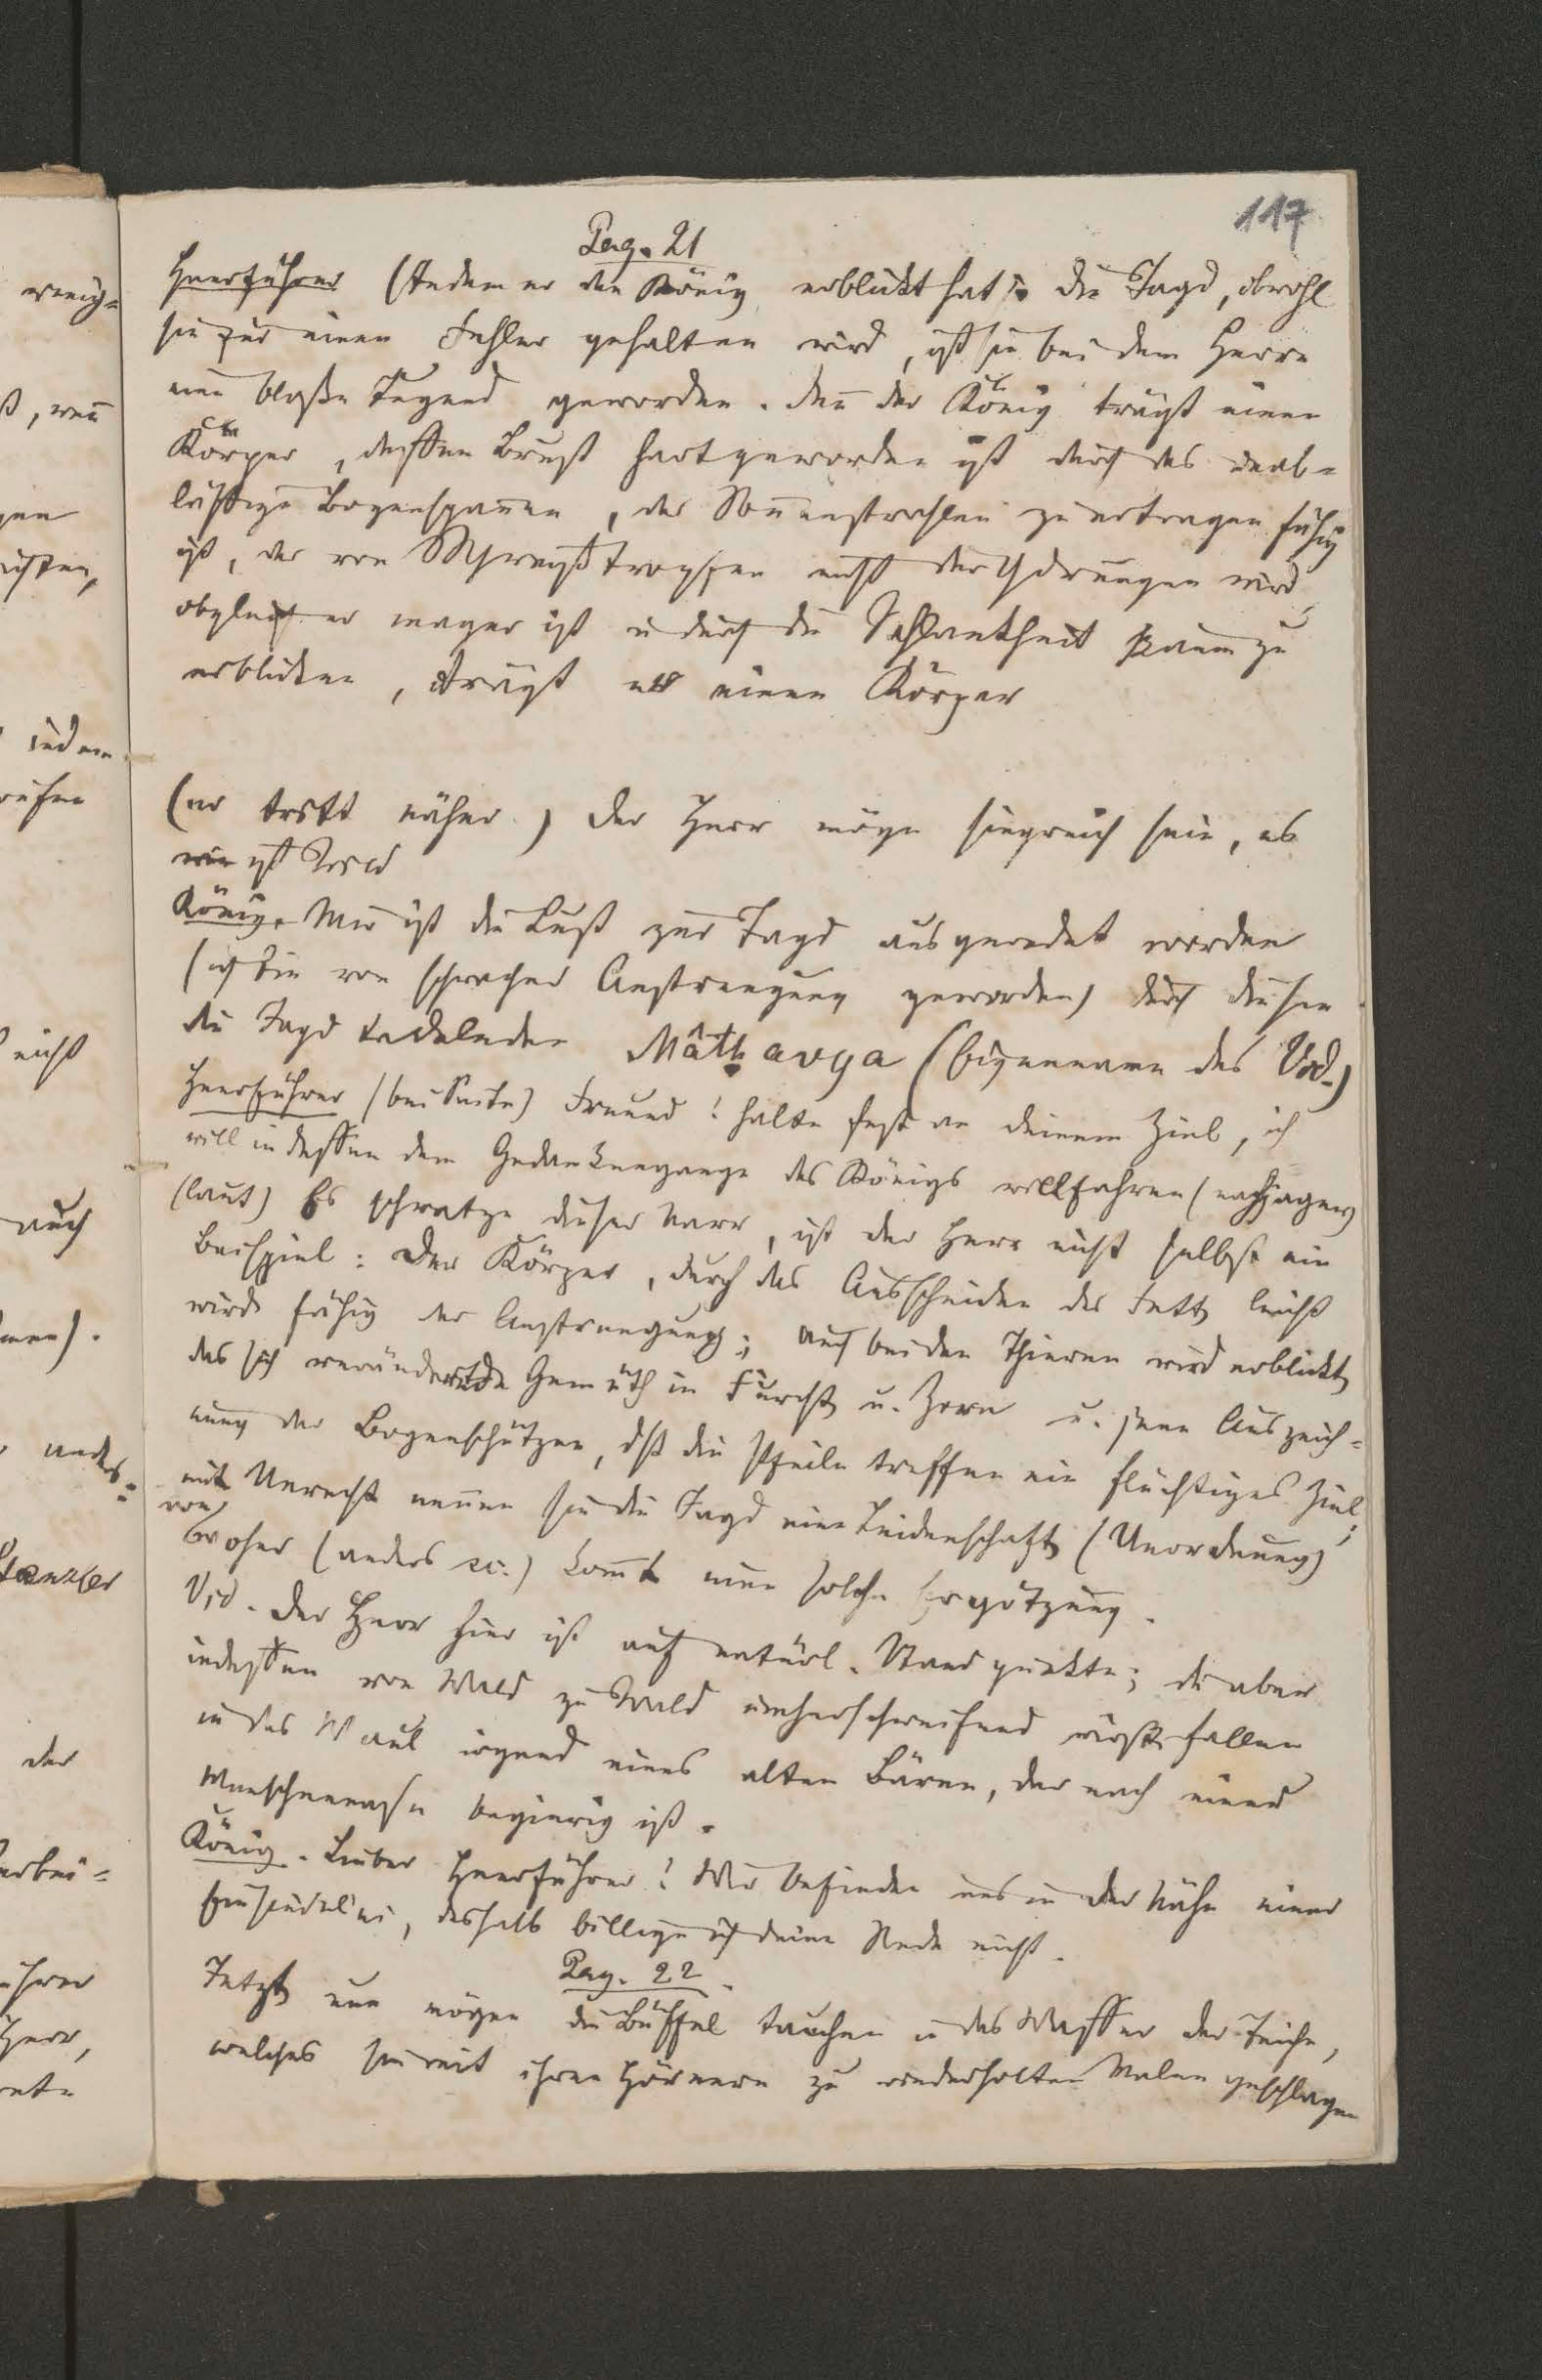 117
Pag. 21
Heerführer (Indem er den König erblickt hat) die Jagd, obwohl
sie für einen Fehler gehalten wird, ist sie bei dem Herrn
eine bloße Tugend geworden. Deñ der König trägt einen
Körper, dessen Brust hart geworden ist durch das unab-
lässige Bogenspañen, der Soñenstrahlen zu ertragen fähig
ist, der von Schweißtropfen nicht durchdrungen wird,
obgleich er mager ist u durch die Schlankheit kaum zu
erblicken, trägt er einen Körper
(er tritt näher) Der Herr möge siegreich sein, es
ist Wild
König. Mir ist die Lust zur Jagd ausgeredet worden
(ich bin von schwacher Anstrengung geworden) durch diesen
die Jagd tadelnden Mâthavya (Eigenname des Vid.)
Heerführer (bei Seite) Freund! halte fest an deinem Ziel, ich
will indessen dem Gedankengange des Königs willfahren (nachjagen)
(laut) Es schwatze dieser Narr, ist der Herr nicht selbst ein
Beispiel: Der Körper, durch das Ausscheiden des Fetts leicht
wird fähig der Anstrengung; auch bei den Thieren wird erblickt
das sich verändernde Gemüth in Furcht u. Zorn u. jene Auszeich-
nung der Bogenschützen, dß die Pfeile treffen ein flüchtiges Ziel;
mit Unrecht neñen sie die Jagd eine Leidenschaft (Unordnung)
von
Woher (anders sc.) kom̃t eine solche Ergötzung.
Vid. Der Herr hier ist auf natürl. Standpunkte; du aber
indessen von Wald zu Wald umherschweifend wirst fallen
in das Maul irgend eines alten Bären, der nach einer
Menschennase begierig ist.
König. Lieber Heerführer! Wir befinden uns in der Nähe einer
Einsiedelei, deshalb billige ich deine Rede nicht.
Pag. 22
Jetzt nun mögen die Büffel tauchen in das Wasser der Teiche,
welches sie mit ihren Hörnern zu wiederholten Malen geschlagen